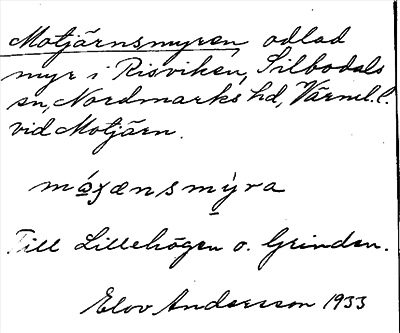 Motjärnsmyren, odlad
myr i Risviken, Silbodals
sn, Nordmarks hd, Värml. l.
vid Motjärn.
Till Lillehögen o. Grinden.
Elov Andersson 1933